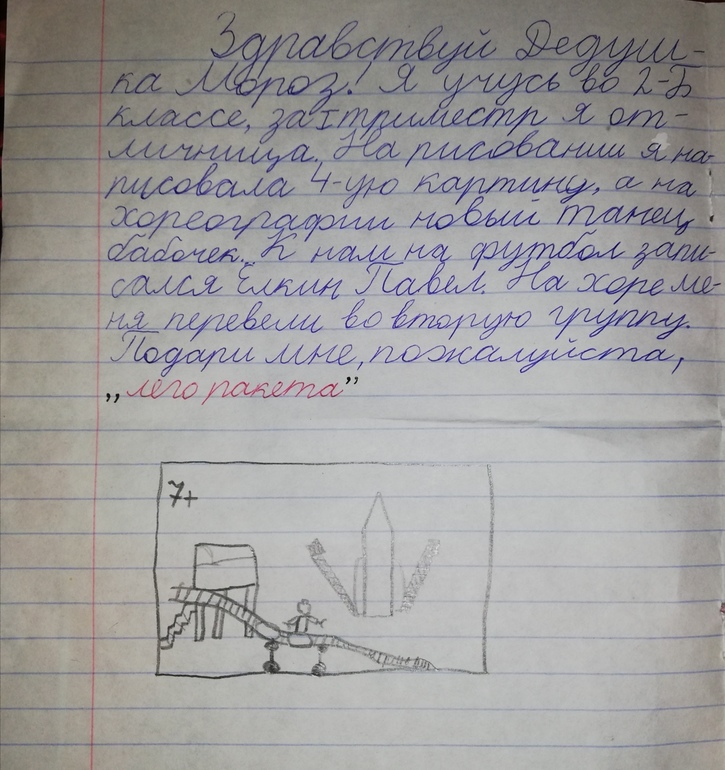 Здравствуй Дедуш-
ка Мороз! Я учусь во 2-Б
классе, за I триместр я от-
личница. На рисовании я на-
рисовала 4-ую картину, а на
хореографии новый танец
бабочек. К нам на футбол запи-
сался Ёлкин Павел. На хоре ме-
ня перевели во вторую группу.
Подари мне, пожалуйста,
„лего ракета”
7+